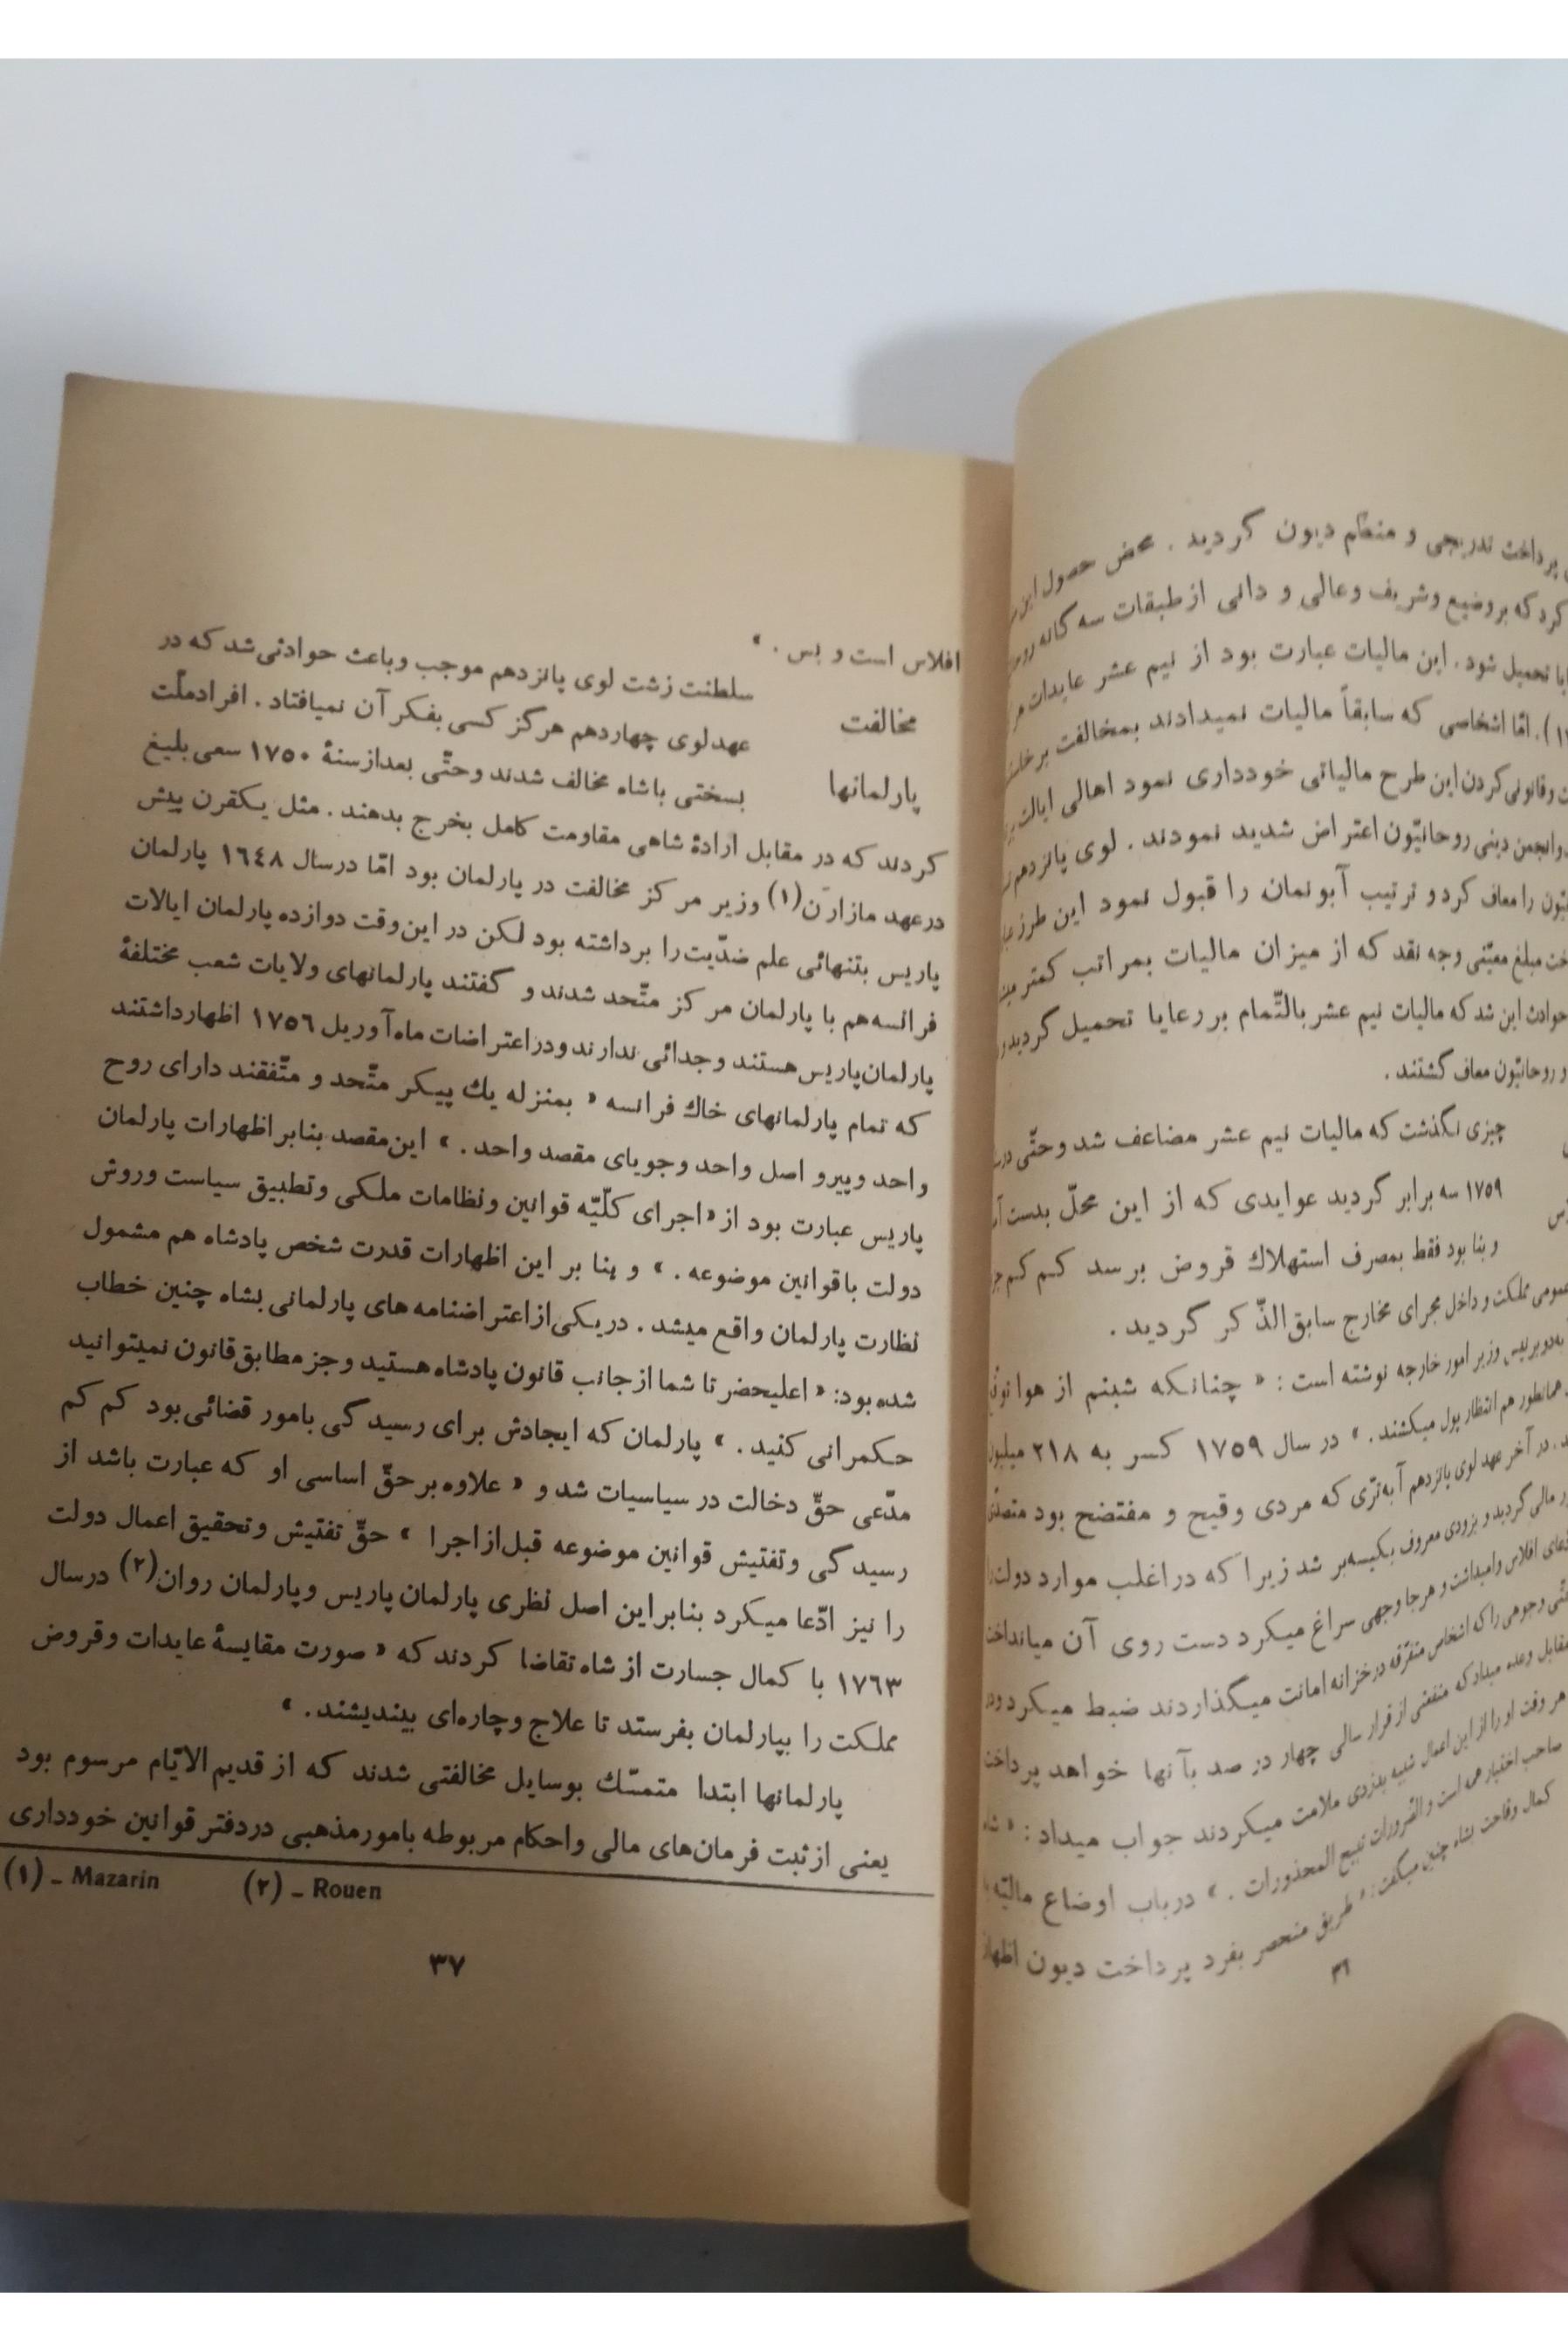 پرداخت تدریجی و منظم دیون گردید . محض حصول این
کرد که بر وضیع و شریف و عالی و دانی از طبقات سه گانه
تحمیل شود . این مالیات عبارت بود از نیم عشر عایدات هر
امّا اشخاصی که سابقاً مالیات نمیدادند بمخالفت بر
و قانونی کردن این طرح مالیاتی خودداری نمود اهالی ایالت
و انجمن دینی روحانیّون اعتراض شدید نمودند . لوی پانزدهم
را معاف کرد و ترتیب آبونمان را قبول نمود این طرز
مبلغ معیّنی وجه نقد که از میزان مالیات بمراتب کمتر
حوادث این شد که مالیات نیم عشر بالتّمام بر رعایا تحمیل گردید و
و روحانیّون معاف گشتند .
چیزی نگذشت که مالیات نیم عشر مضاعف شد و حتّی در
۱۷۵۹ سه برابر گردید عوایدی که از این محلّ بدست
و بنا بود فقط بمصرف استهلاك قروض برسد کم کم
عمومی مملکت و داخل مجرای مخارج سابق الذّکر گردید .
وزیر امور خارجه نوشته است : « چنانکه شبنم از هوا
همانطور هم انتظار پول میکشند . » در سال ۱۷۵۹ کسر به ۲۱۸ میلیون
در آخر عهد لوی پانزدهم آبه‌تری که مردی وقیح و مفتضح بود
مالی گردید و بزودی معروف بکیسه‌بر شد زیرا که در اغلب موارد دولت
افلاس وامیداشت و هر جا وجهی سراغ میکرد دست روی آن میانداخت
وجوهی را که اشخاص متفرّقه در خزانه امانت میگذاردند ضبط میکرد و در
مقابل وعده میداد که منفعتی از قرار سالی چهار در صد بآنها خواهد پرداخت
هر وقت او را از این اعمال شبیه بدزدی ملامت میکردند جواب میداد : « شاه
صاحب اختیار همه است و الضّرورات تبیح المحذورات . » در باب اوضاع مالیّه
کمال وقاحت بشاه چنین میگفت : « طریق منحصر بفرد پرداخت دیون اظهار
۳۶
افلاس است و بس . »
مخالفت
پارلمانها
سلطنت زشت لوی پانزدهم موجب و باعث حوادثی شد که در
عهد لوی چهاردهم هرگز کسی بفکر آن نمیافتاد . افراد ملّت
بسختی با شاه مخالف شدند و حتّی بعد از سنهٔ ۱۷۵۰ سعی بلیغ
کردند که در مقابل ارادهٔ شاهی مقاومت کامل بخرج بدهند . مثل یکقرن پیش
در عهد مازارن(۱) وزیر مرکز مخالفت در پارلمان بود امّا در سال ۱۶۴۸ پارلمان
پاریس بتنهائی علم ضدّیت را برداشته بود لکن در این وقت دوازده پارلمان ایالات
فرانسه هم با پارلمان مرکز متّحد شدند و گفتند پارلمانهای ولایات شعب مختلفهٔ
پارلمان پاریس هستند و جدائی ندارند و در اعتراضات ماه آوریل ۱۷۵۶ اظهار داشتند
که تمام پارلمانهای خاك فرانسه « بمنزله یك پیکر متّحد و متّفقند دارای روح
واحد و پیرو اصل واحد و جویای مقصد واحد . » این مقصد بنابر اظهارات پارلمان
پاریس عبارت بود از « اجرای کلّیّه قوانین و نظامات ملکی و تطبیق سیاست و روش
دولت با قوانین موضوعه . » و بنا بر این اظهارات قدرت شخص پادشاه هم مشمول
نظارت پارلمان واقع میشد . در یکی از اعتراضنامه های پارلمانی بشاه چنین خطاب
شده بود: « اعلیحضرتا شما از جانب قانون پادشاه هستید و جز مطابق قانون نمیتوانید
حکمرانی کنید . » پارلمان که ایجادش برای رسیدگی بامور قضائی بود کم کم
مدّعی حقّ دخالت در سیاسیات شد و « علاوه بر حقّ اساسی او که عبارت باشد از
رسیدگی و تفتیش قوانین موضوعه قبل از اجرا » حقّ تفتیش و تحقیق اعمال دولت
را نیز ادّعا میکرد بنابر این اصل نظری پارلمان پاریس و پارلمان روان(۲) در سال
۱۷۶۳ با کمال جسارت از شاه تقاضا کردند که « صورت مقایسهٔ عایدات و قروض
مملکت را بپارلمان بفرستد تا علاج و چاره‌ای بیندیشند . »
پارلمانها ابتدا متمسّك بوسایل مخالفتی شدند که از قدیم الایّام مرسوم بود
یعنی از ثبت فرمان‌های مالی و احکام مربوطه بامور مذهبی در دفتر قوانین خودداری
(۱) - Mazarin (۲) - Rouen
۳۷